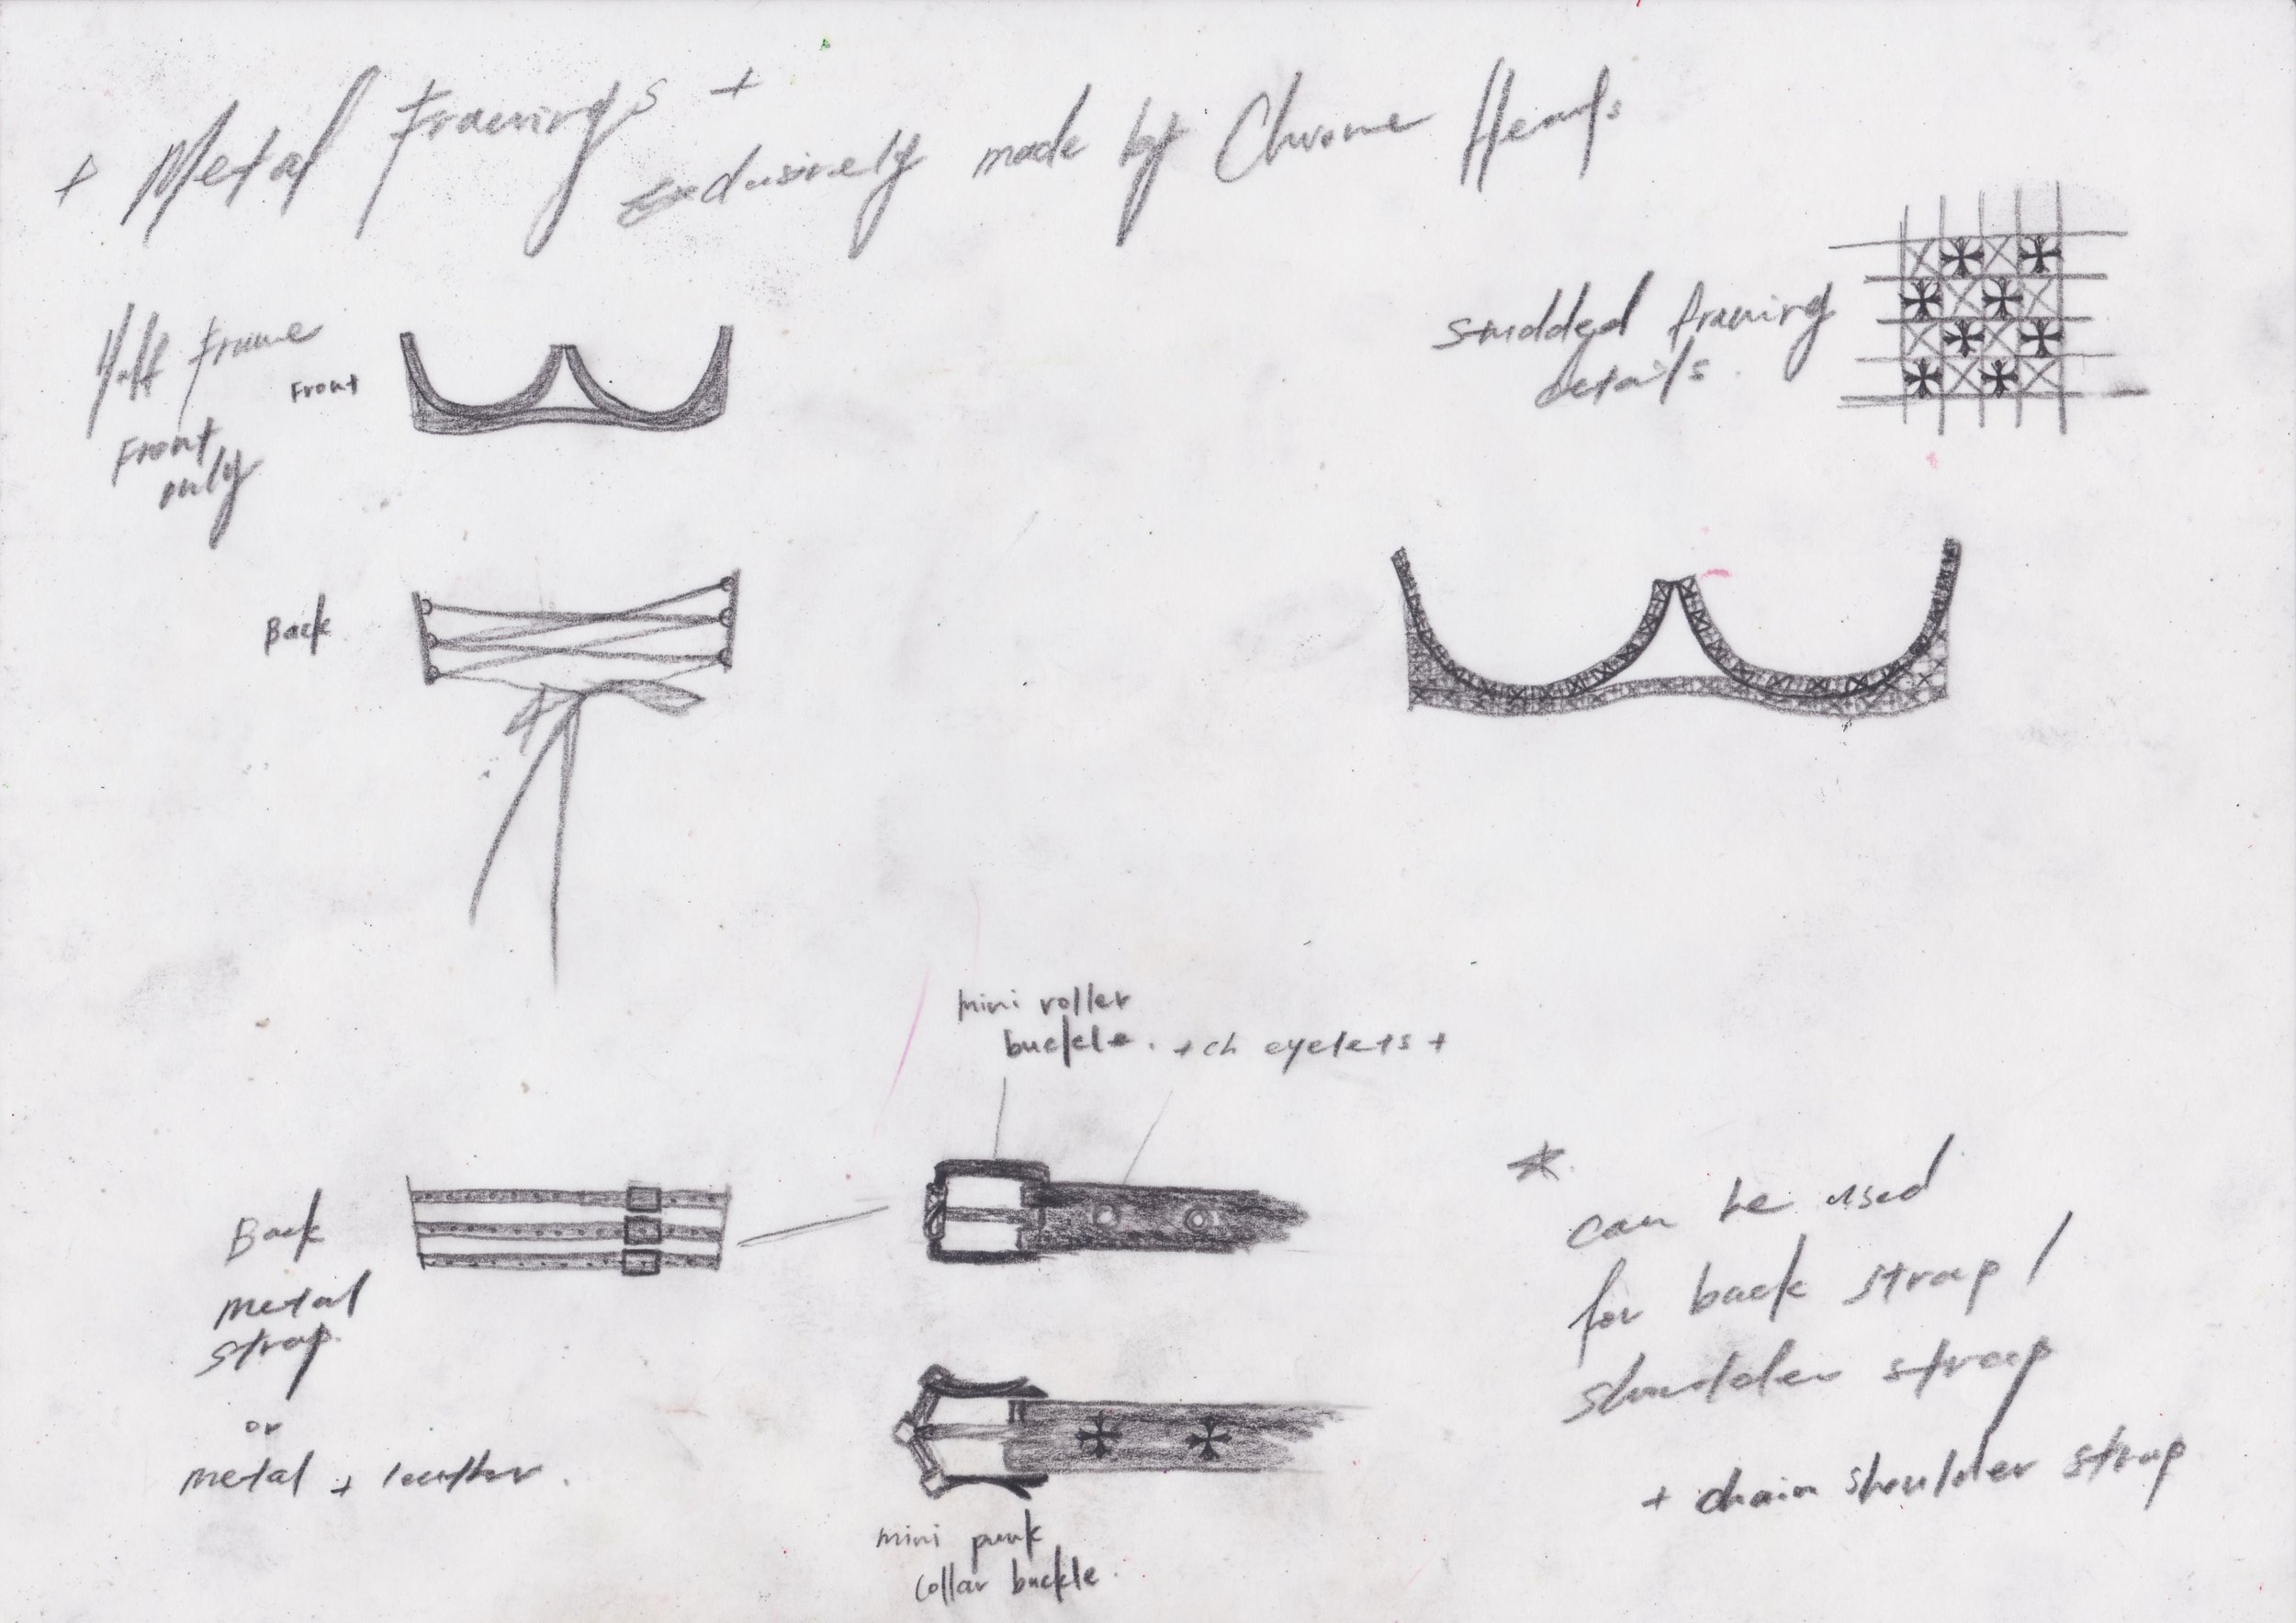 + Metal Framings +
exclusively made by Chrome Hearts
Half Frame
Front only
Front
studded framing
details.
Back
mini roller
buckle.
+ ch eyelets +
Back
metal
strap.
or
metal + leather.
mini punk
collar buckle.
*
can be used
for back strap /
shoulder strap
+ chain shoulder strap